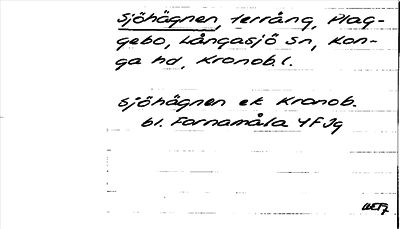 Sjöhägnen, terräng, Plag-
gebo, Långasjö Sn, Kon-
ga hd, Kronob. l.
Sjöhägnen ek Kronob.
bl. Farnamåla 4F Jg